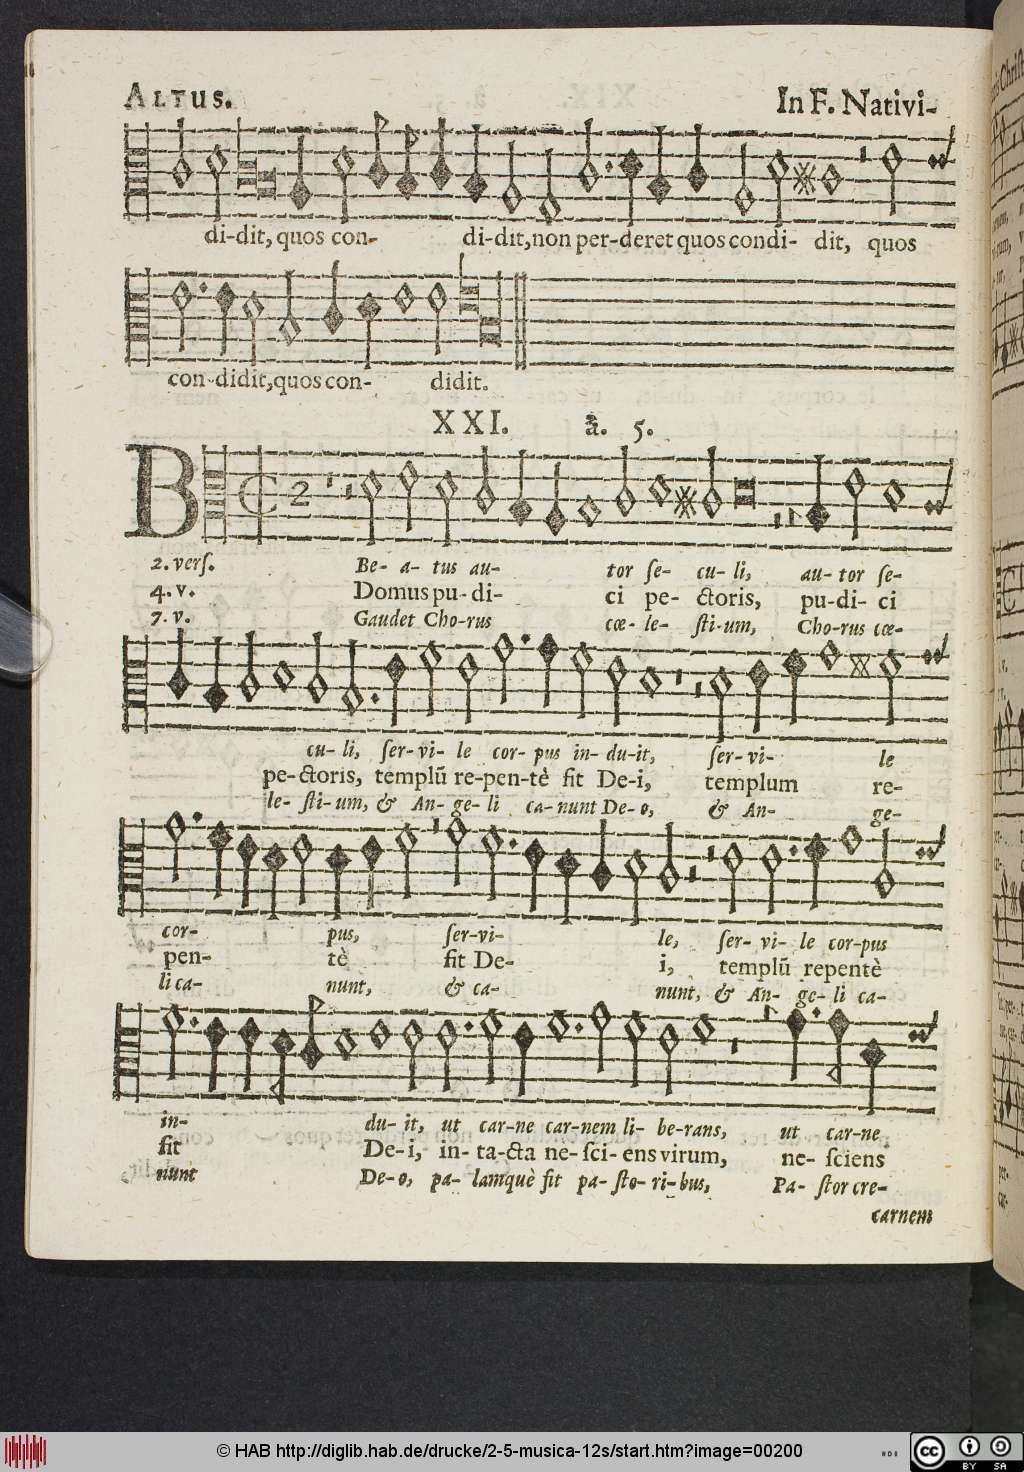 ALTUS. In F. Nativi-
di-dit, quos con- di-dit, non per-deret quos condi- dit, quos
con-didit, quos con- didit.
XXI. à. 5.
B
2. verſ. Be- a- tus au- tor ſe- cu- li, au- tor ſe-
4. v. Domus pu-di- ci pe- ctoris, pu-di- ci
7. v. Gaudet Cho-rus cœ- le- ſti-um, Cho-rus cœ-
cu- li, ſer-vi- le cor- pus in- du-it, ſer- vi- le
pe-ctoris, templũ re-pen-tè fit De-i, templum re-
le- ſti-um, & An- ge- li ca-nunt De-o, & An- ge-
cor- pus, ſer-vi- le, ſer- vi- le cor-pus
pen- tè fit De- i, templũ repentè
li ca- nunt, & ca- nunt, & An- ge- li ca-
in- du- it, ut car-ne car-nem li- be-rans, ut car-ne
fit De-i, in-ta-cta ne-ſci-ens virum, ne- ſciens
nunt De-o, pa- lamquè fit pa-ſto-ri-bus, Pa- ſtor cre-
carnem
© HAB http://diglib.hab.de/drucke/2-5-musica-12s/start.htm?image=00200
cc BY SA